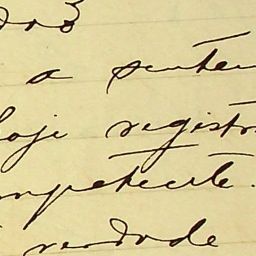 dos
a senten
hoje registr
mpetente.
verdade